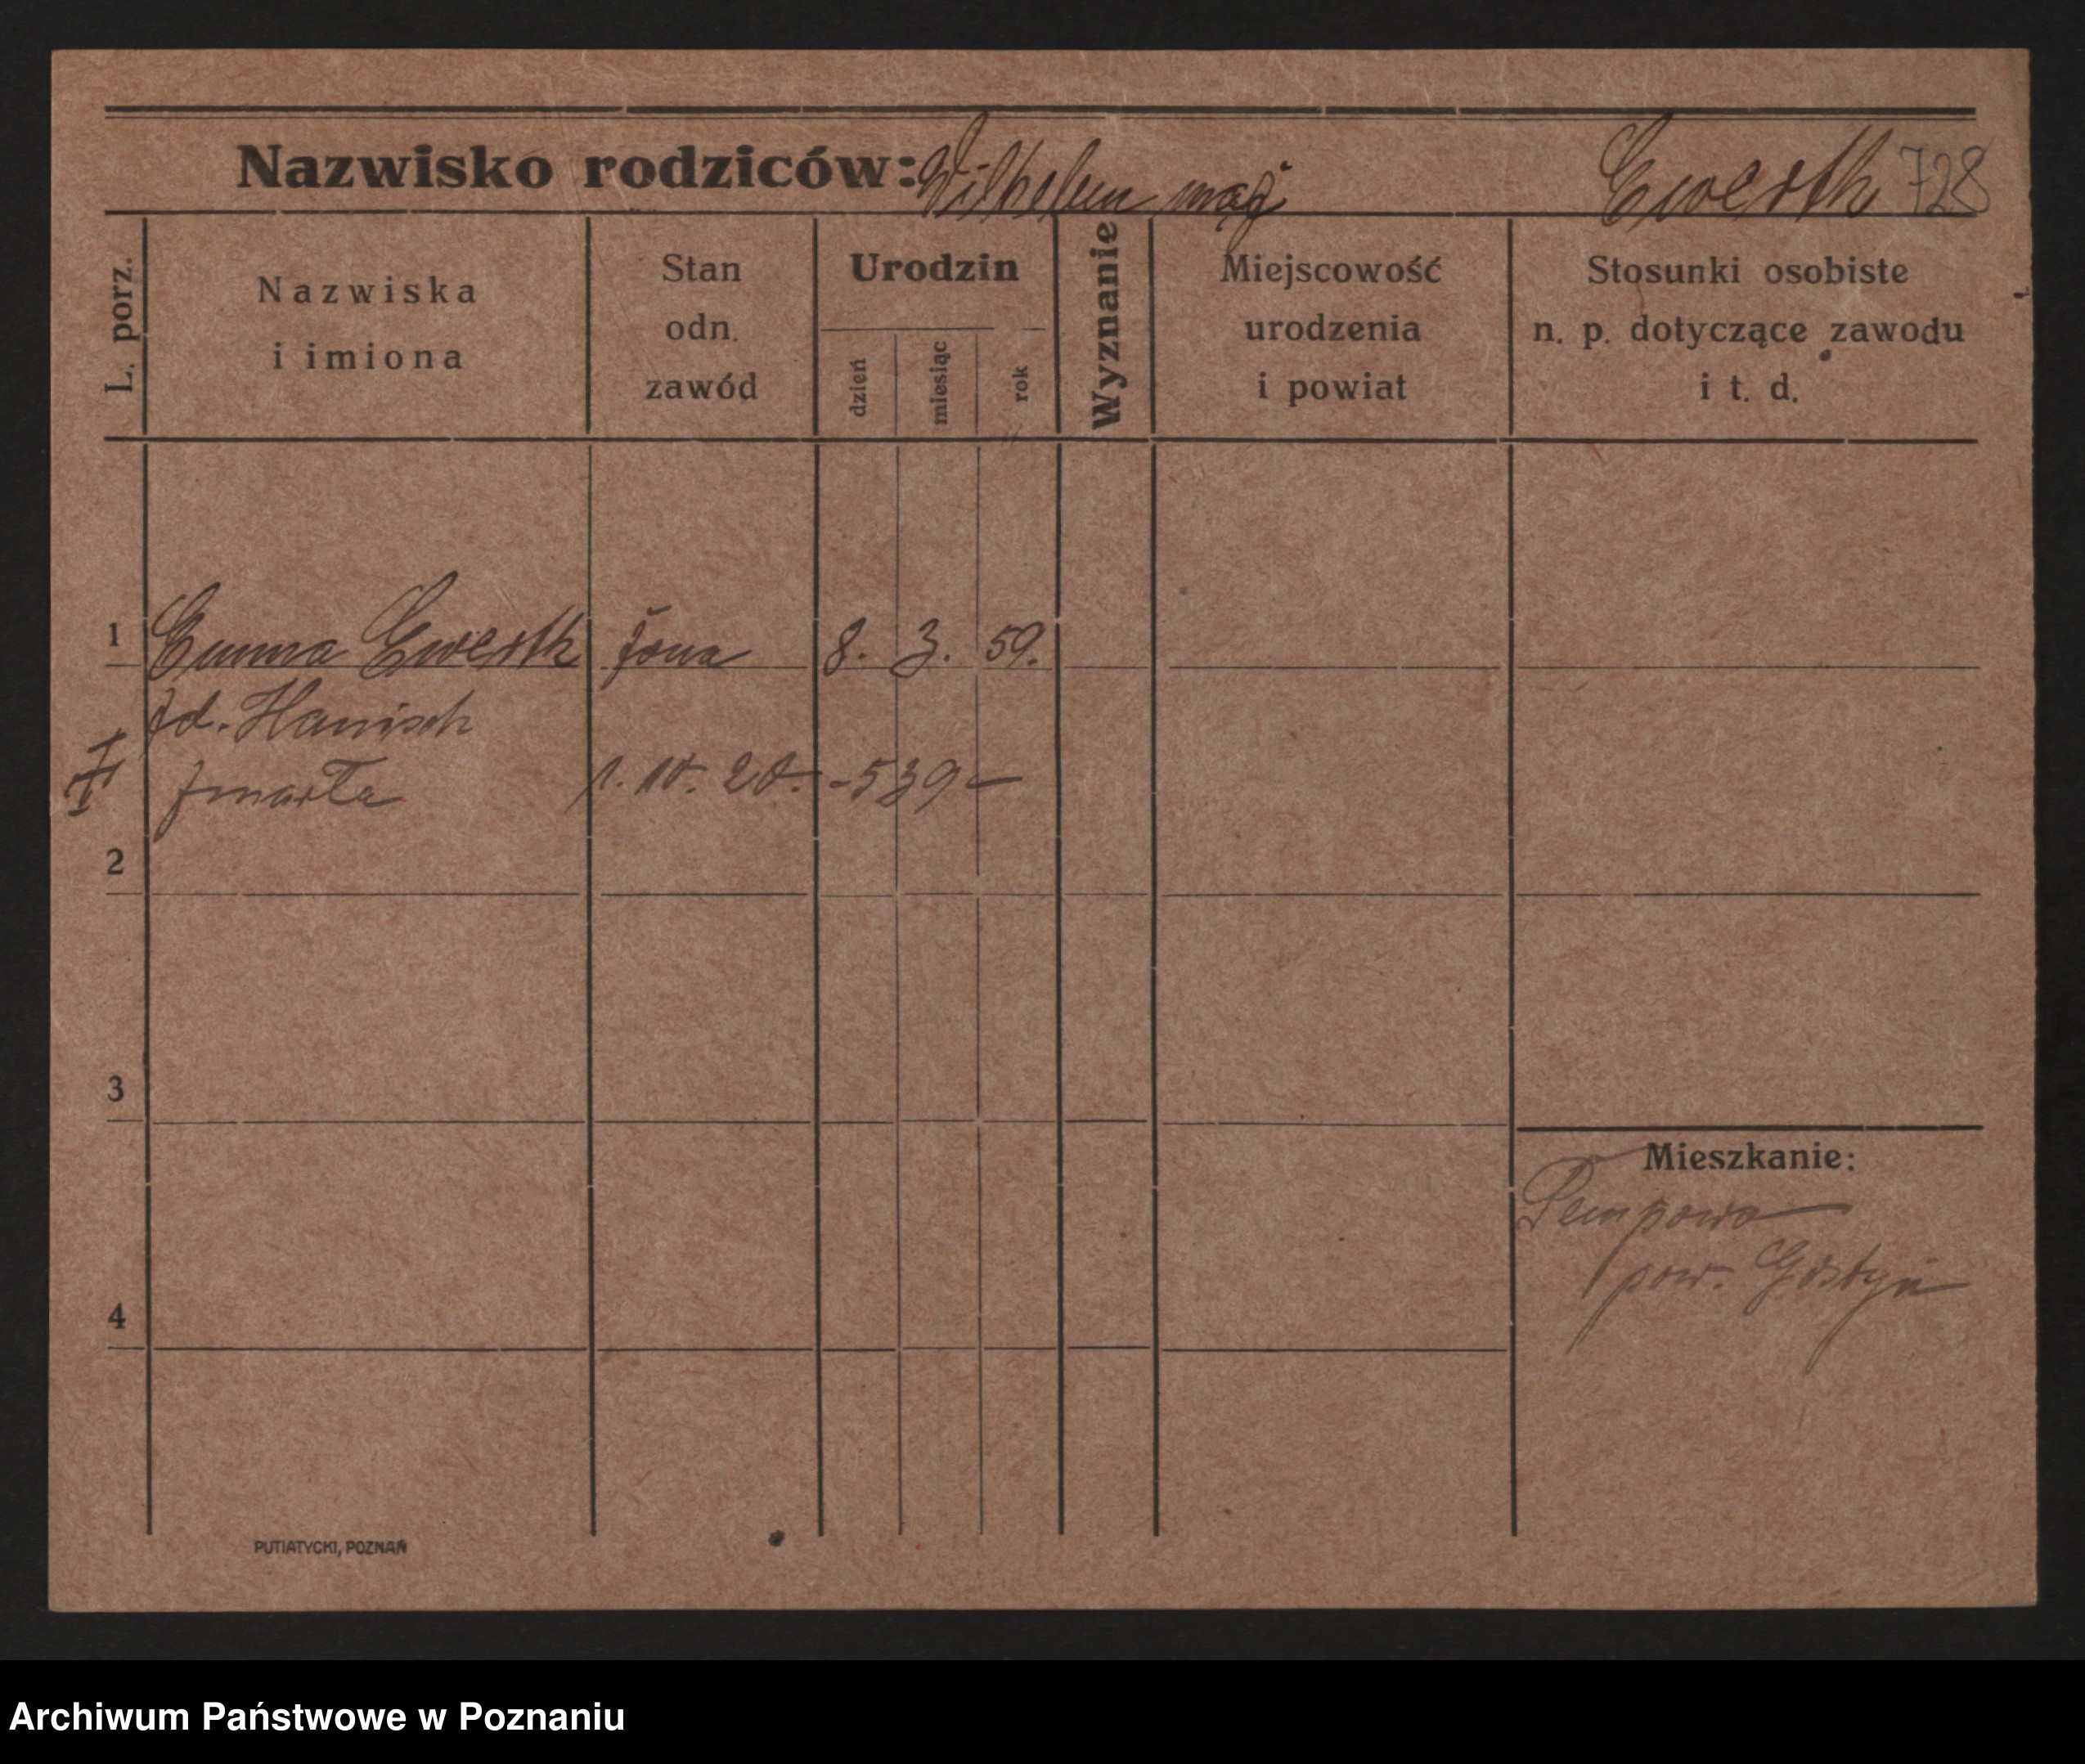 Nazwisko rodziców: Wilhelm mąż Ewerth 728
L. porz.
Nazwiska
i imiona
Stan
odn.
zawód
Urodzin
dzień
miesiąc
rok
Wyznanie
Miejscowość
urodzenia
i powiat
Stosunki osobiste
n. p. dotyczące zawodu
i t. d.
1 Emma Ewerth żona 8. 3. 59.
zd. Hanisch
zmarła 1. 10. 20. - 539 -
2
3
Mieszkanie:
Pempowo
pow. Gostyń
4
PUTIATYCKI, POZNAŃ
Archiwum Państwowe w Poznaniu